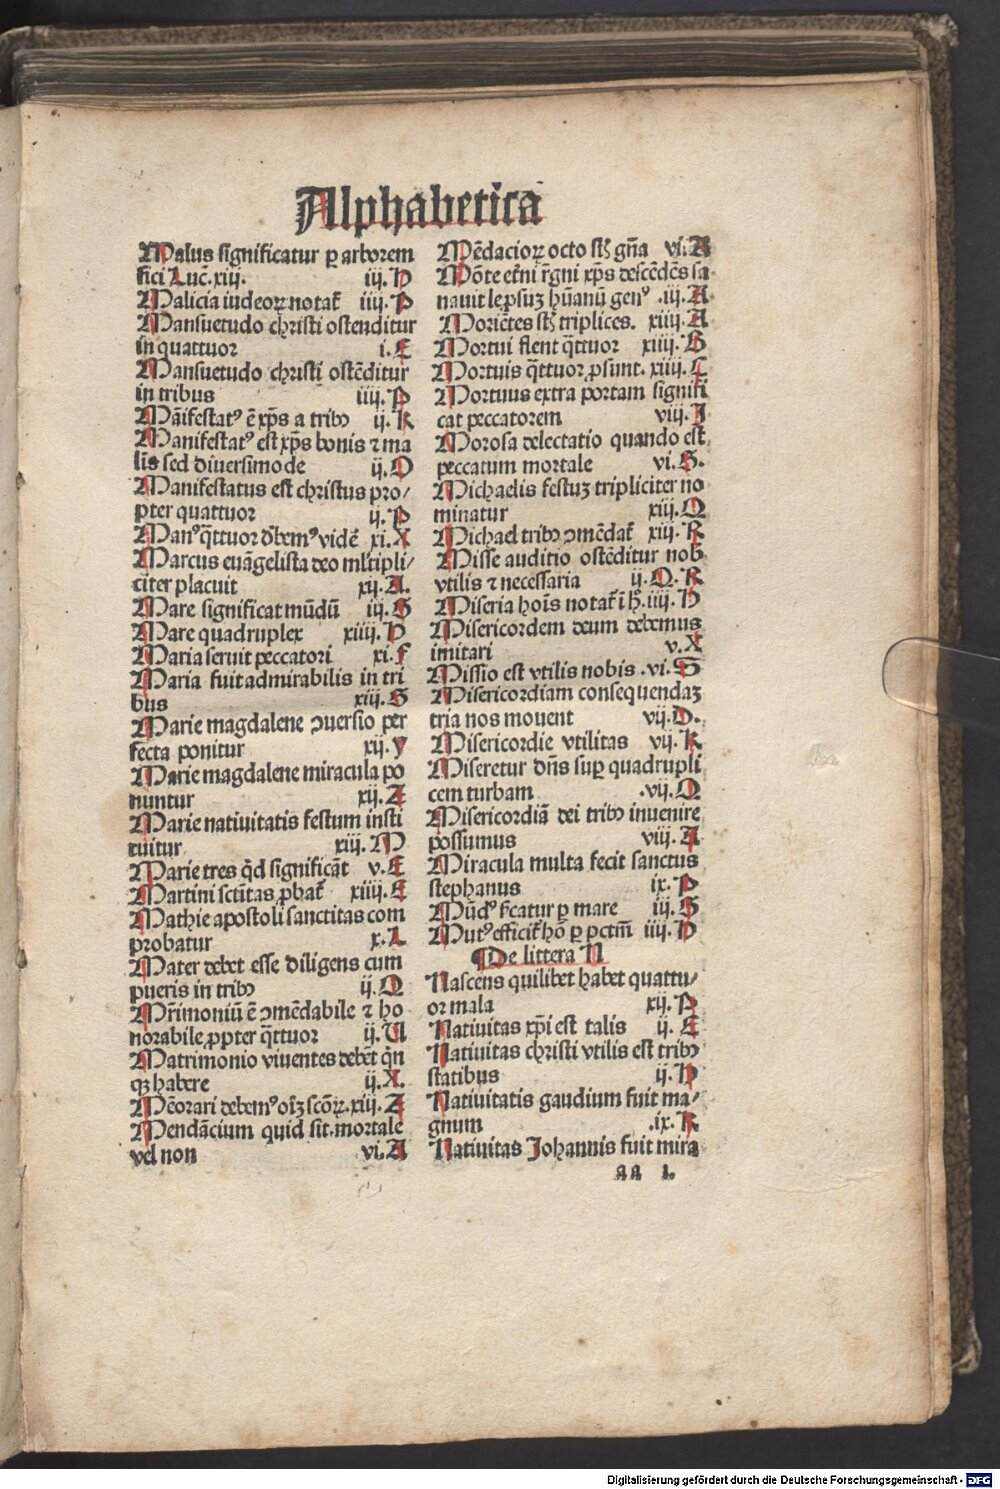 Alphabetica
Malus significatur ꝑ arborem
fici Luc̄.xiij. iij.H
Malicia iudeoꝝ notat᷑ iiij.P
Mansuetudo christi ostenditur
in quattuor i.E
Mansuetudo christi ostēditur
in tribus iiij.P
Māifestatꝰ ē xp̄s a tribꝰ ij.K
Manifestatꝰ est xp̄s bonis ⁊ ma
lis sed diuersimode ij.O
Manifestatus est christus pro/
pter quattuor ij.P
Manꝰ q̄ttuor dēbemꝰ vidē xi.X
Marcus euāgelista deo ml̄tipli/
citer placuit xij.A.
Mare significat mūdū iij.G
Mare quadruplex xiiij.H
Maria seruit peccatori xi.F
Maria fuit admirabilis in tri
bus xiij.G
Marie magdalene ꝯuersio per
fecta ponitur xij.Y
Marie magdalene miracula po
nuntur xij.Z
Marie natiuitatis festum insti
tuitur xiij.M
Marie tres qd̄ significāt v.E
Martini sctītas ꝓbat᷑ xiiij.E
Mathie apostoli sanctitas com
probatur x.L
Mater debet esse diligens cum
pueris in tribꝰ ij.Q
Mr̄imoniū ē ꝯmēdabile ⁊ ho
norabile ꝓpter q̄ttuor ij.U
Matrimonio viuentes debēt qn̄
qꝫ habere ij.X.
Mēorari debemꝰ oīꝫ scōꝝ.xiij.Z
Mendācium quid sit.mortale
vel non vi.A
Mēdacioꝝ octo st̄ gn̄a vi.A
Mōte et̄ni r̄gni xp̄s descēdēs sa
nauit le.psuꝫ hūanū genꝰ .iij.A
Moriētes st̄ triplices. xiiij.A
Mortui flent q̄ttuor xiiij.B
Mortuis q̄ttuor ꝓsunt. xiiij.C
Mortuus extra portam signifi
cat peccatorem viij.I
Morosa delectatio quando est
peccatum mortale vi.G.
Michaelis festuꝫ tripliciter no
minatur xiij.Q
Michael tribꝰ ꝯmēdat᷑ xiij.R
Misse auditio ostēditur nob̄
vtilis ⁊ necessaria ij.Q.R
Miseria hoīs notat᷑ ī h̄.iiij.H
Misericordem deum debemus
imitari v.X
Missio est vtilis nobis .vi.S
Misericordiam consequendaꝫ
tria nos mouent vij.D.
Misericordie vtilitas vij.K
Miseretur dn̄s suꝑ quadrupli
cem turbam .vij.Q
Misericordiā dei tribꝰ inuenire
possumus viij.A
Miracula multa fecit sanctus
stephanus ix.P
Mūdꝰ s̄catur ꝑ mare iij.G
Mutꝰ efficit᷑ hō ꝑ pctm̄ iiij.H
De littera N
Nascens quilibet habet quattu/
or mala xij.P
Natiuitas xp̄i est talis ij.E
Natiuitas christi vtilis est tribꝰ
statibus ij.H
Natiuitatis gaudium fuit ma/
gnum .ix.K
Natiuitas Johannis fuit mira
aa 1.
Digitalisierung gefördert durch die Deutsche Forschungsgemeinschaft - DFG